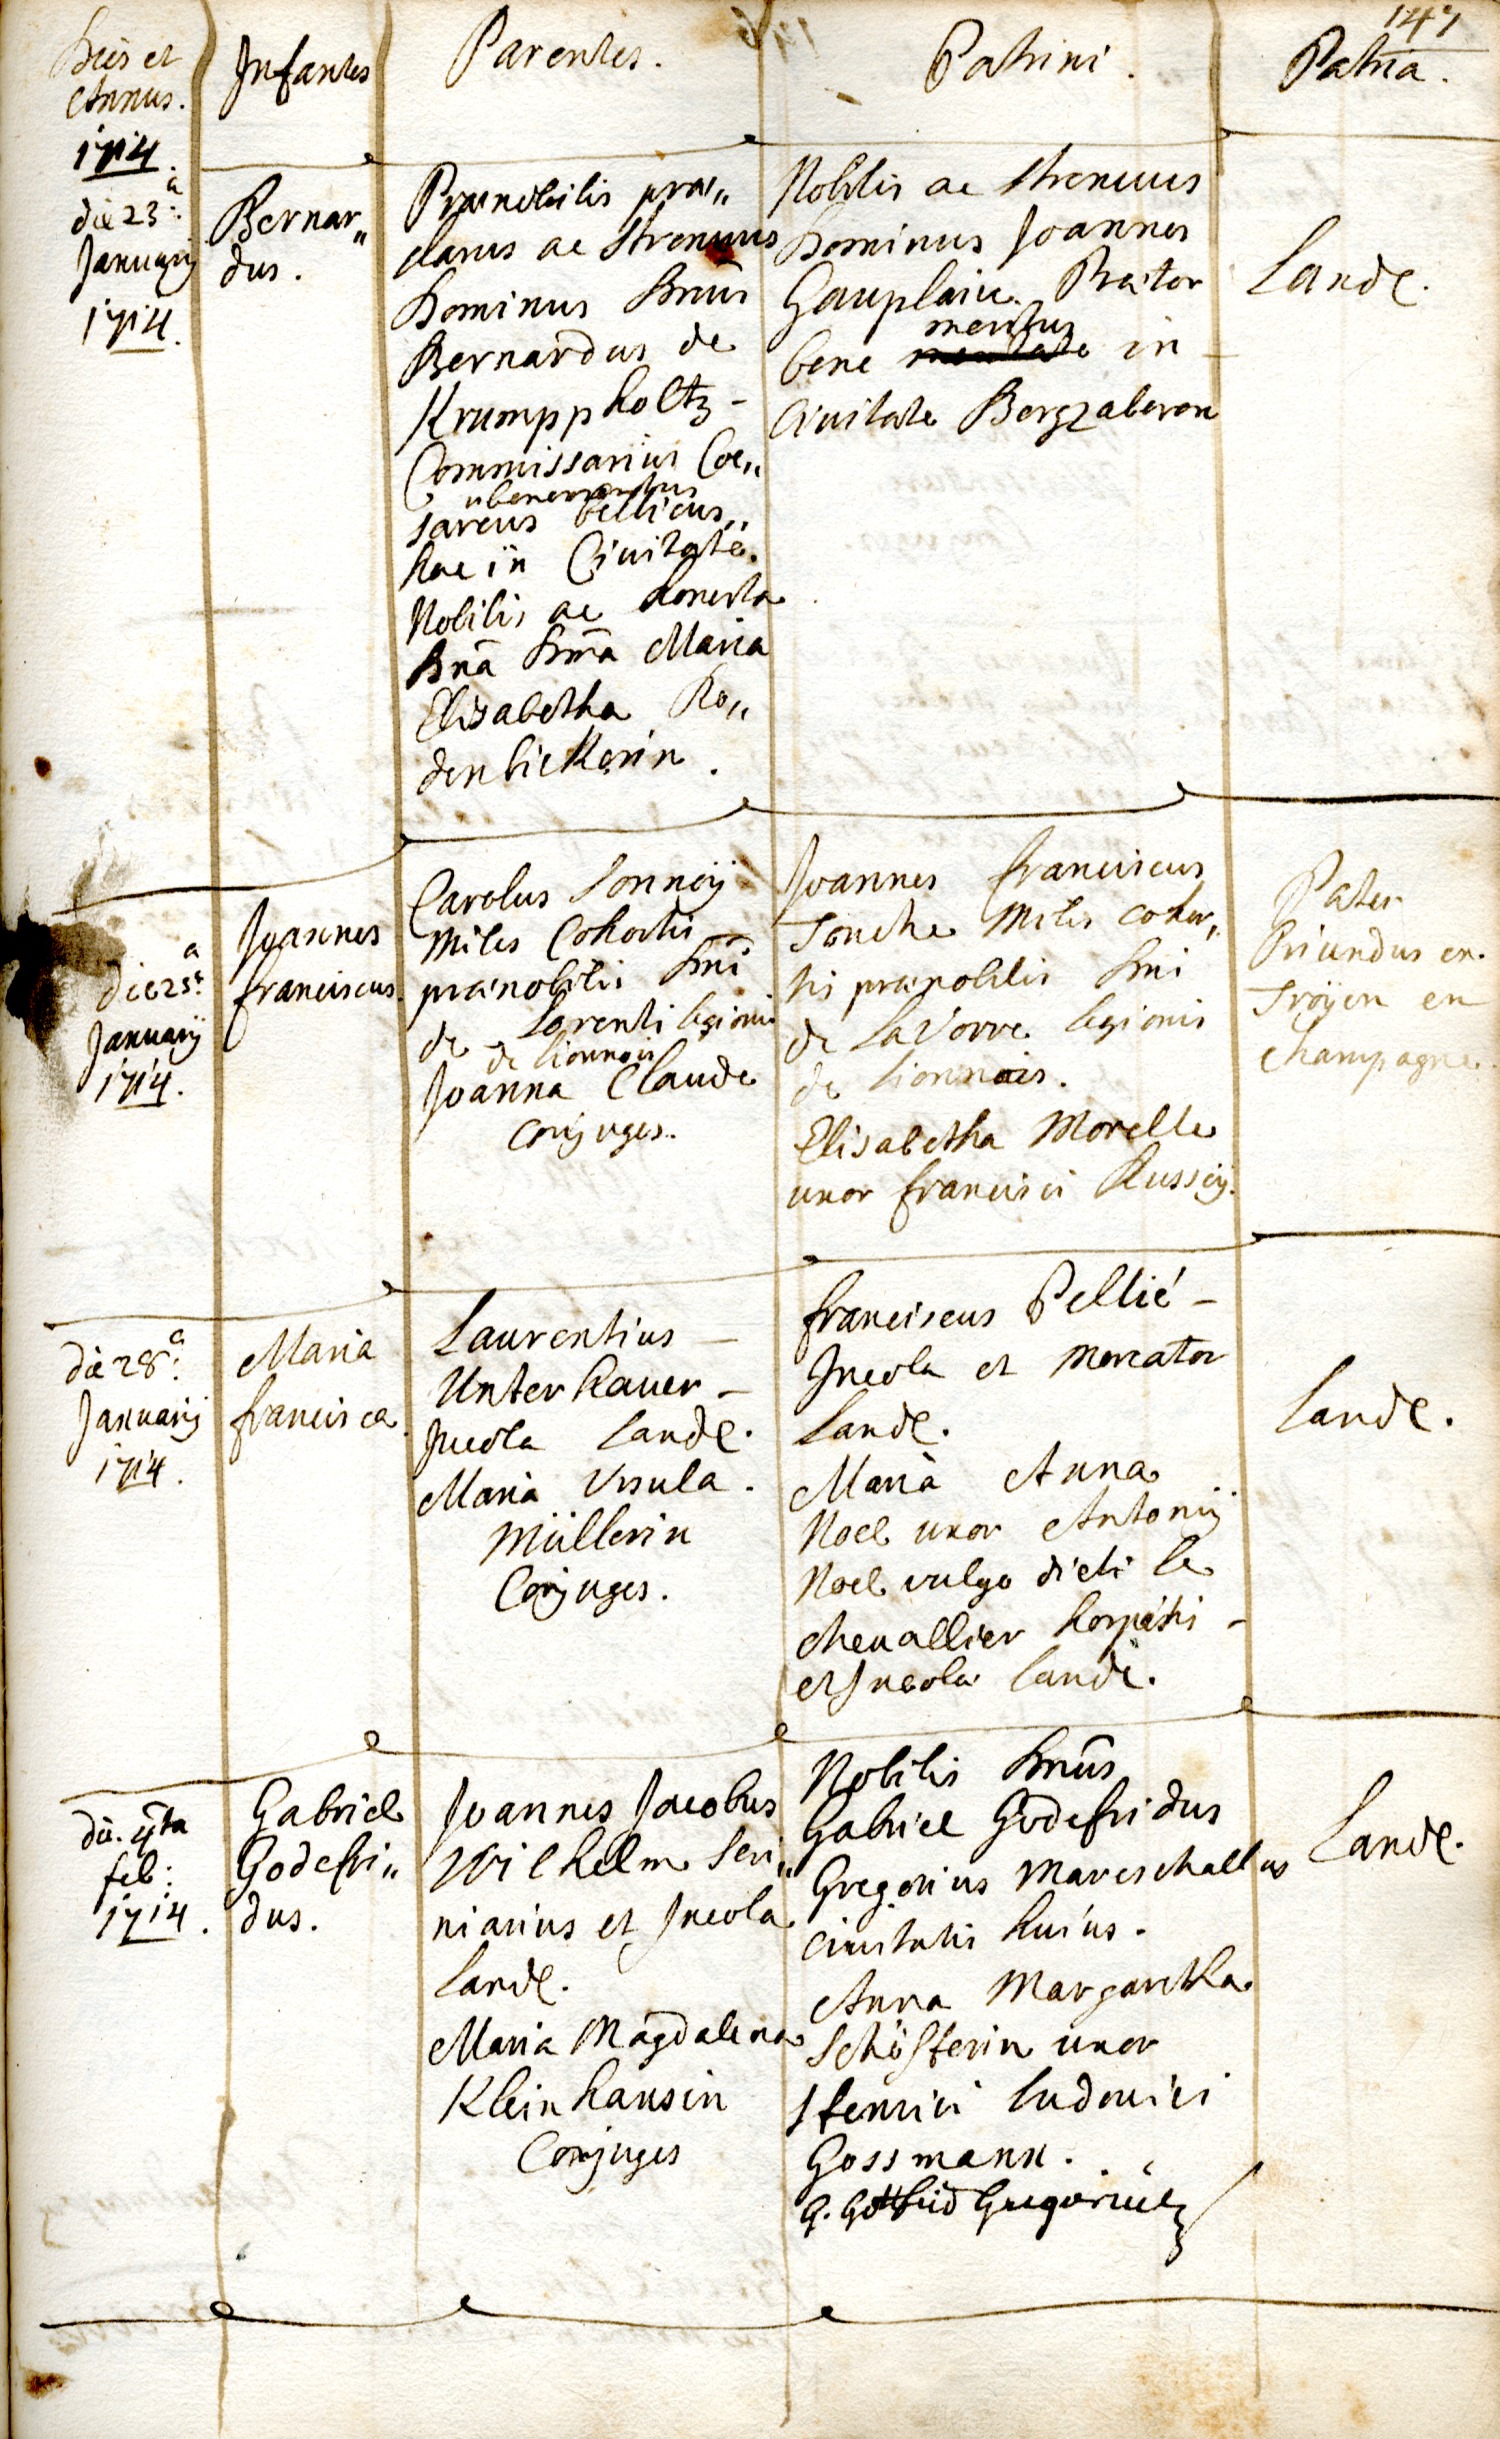 147
Dies et
Annus.
1714.
Infantes
Parentes.
Patrini.
Patria.
die 23.a
Januarij
1714.
Bernar„
dus.
Prænobilis præ„
clarus ac strenuus
Dominus Dnus
Bernardus de
Krumppholtz -
Commissarius Cæ„
ubenemeritus
sareus bellicus„
hac in Civitate.
Nobilis ac honesta
Dna Dna Maria
Elisabetha Ro„
denbickerin.
Nobilis ac strenuus
Dominus Joannes
Prætor
meritus
bene in -
Civitate Bergzaberen
Landæ.
die 25.a
Januarij
1714.
Joannes
franciscus.
Carolus Sonnoij
Miles Cohortis
prænobilis Dni
de Lorenti legionis
de lionnois
Joanna Claude
Conjuges.
Joannes franciscus
Miles cohor„
tis prænobilis Dni
de LaVorre legionis
de lionnois.
Elisabetha Morelle
uxor francisci Russeij.
Pater
oriundus en
Troyen en
Champagne.
die 28.a
Januarij
1714.
Maria
francisca.
Laurentius -
Unterhauer -
Incola Landæ.
Maria Ursula.
Müllerin
Conjuges.
franciscus Pellié -
Incola et Mercator
Landæ.
Maria Anna
Noel uxor Antonij
Noel vulgo dicti le
chevallier hospitis -
et Incolæ Landæ.
Landæ.
die. 4ta
feb:
1714.
Gabriel
Godefri„
dus.
Joannes Jacobus
Wilhelm Scri„
niarius et Incola
Landæ.
Maria Magdalena
Kleinhansin
Conjuges
Nobilis Dnus
Gabriel Godefridus
Gregorius Mareschallus
civitatis huius.
Anna Margaretha
uxor
Henrici Ludovici
Gossmann.
G. Gottfrid Gregorius
Landæ.